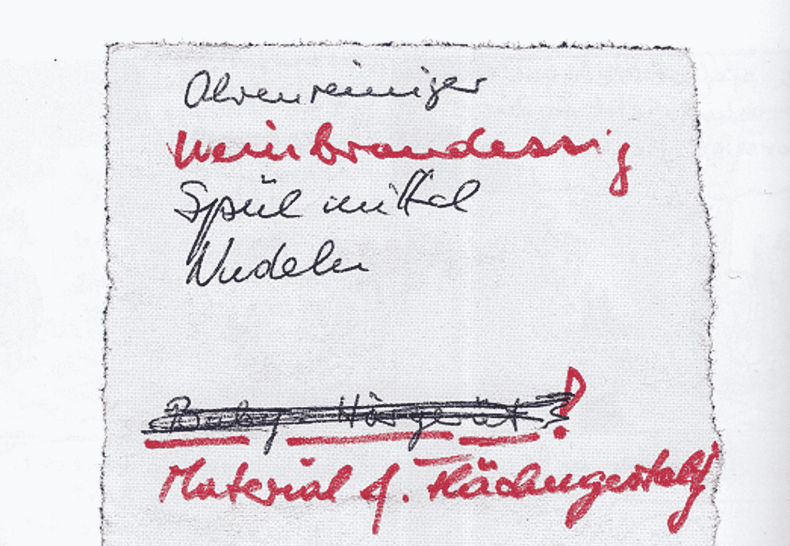 Ohrenreiniger
Weinbrandessig
Spülmittel
Nudeln
Baby Hörgerät !
Material f. Flächengestaltg